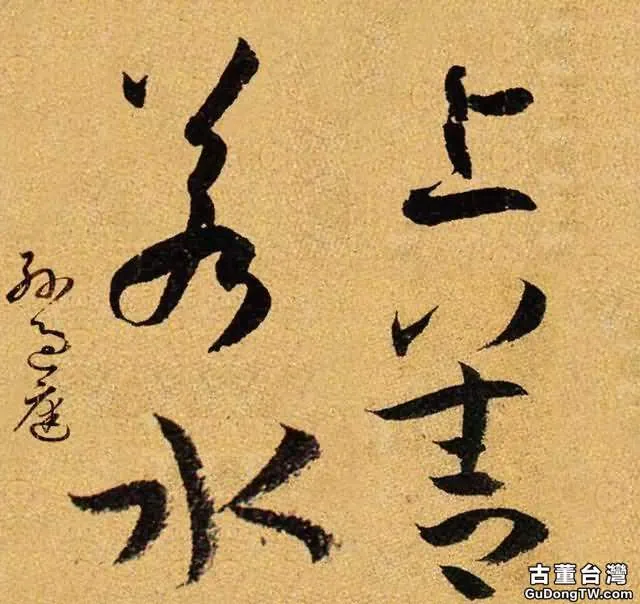 上善
若水
孙过庭
古董台灣
GuDongTW.com